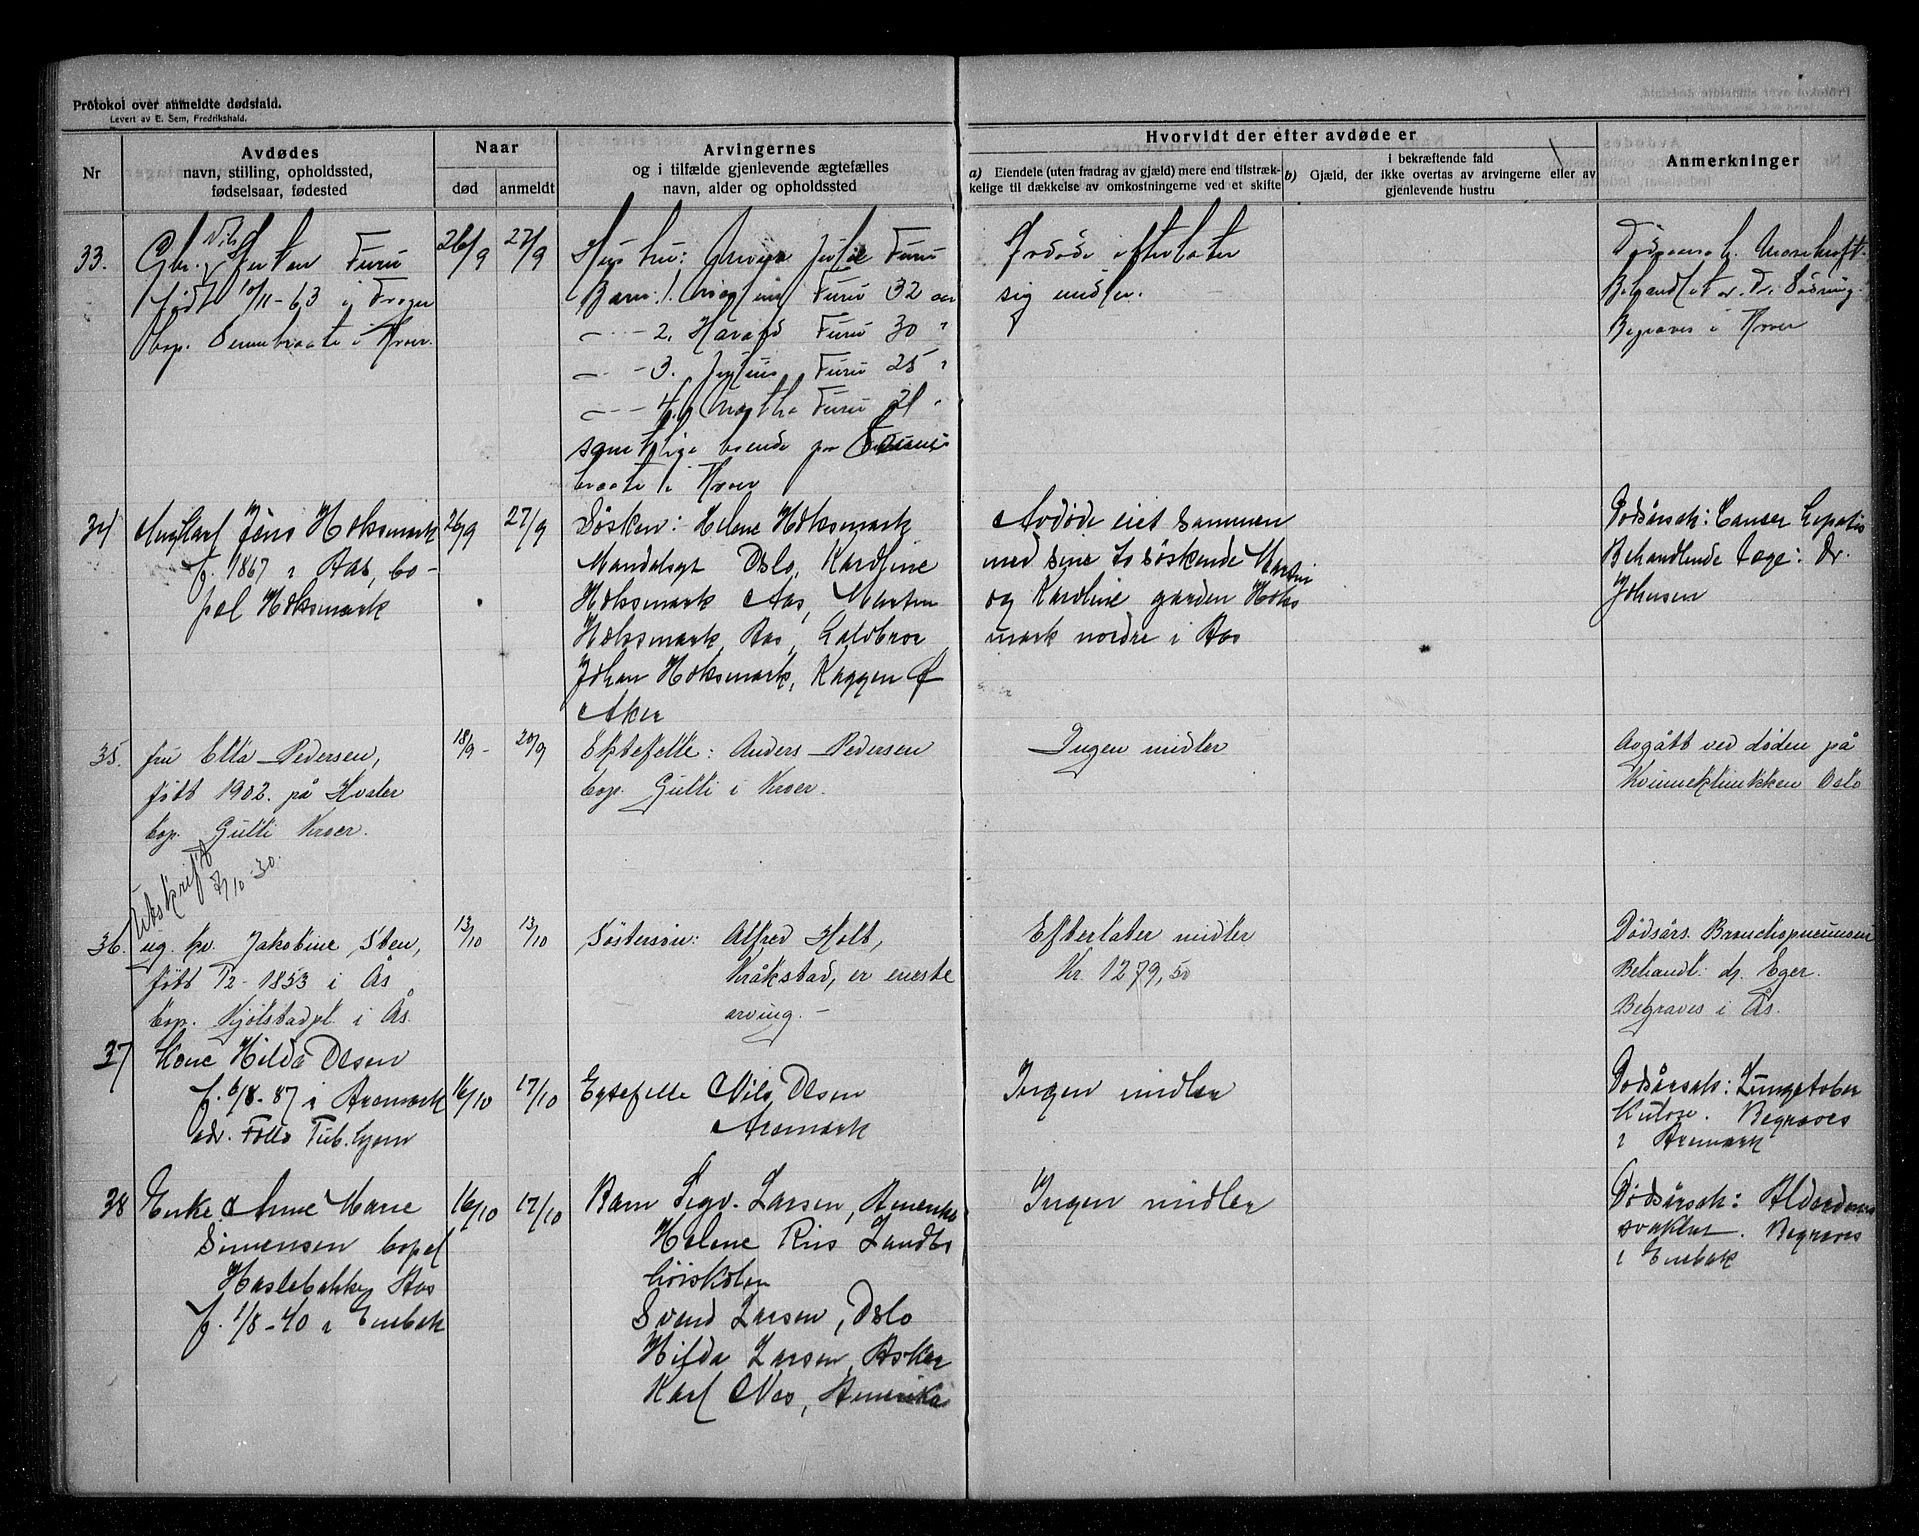 Protokol over anmeldte dødsfald.
Levert av E. Sem, Fredrikshald.
Nr
Avdødes
navn, stilling, opholdssted,
fødselsaar, fødested
Naar
død
anmeldt
Arvingernes
og i tilfælde gjenlevende ægtefælles
navn, alder og opholdssted
Hvorvidt der efter avdøde er
a) Eiendele (uten fradrag av gjæld) mere end tilstræk-
kelige til dækkelse av omkostningerne ved et skifte
b) I bekræftende fald
Gjæld, der ikke overtas av arvingerne eller av
gjenlevende hustru
Anmerkninger
33.
Gbr. Nils Furu
født 10/11-63 i
bop. i Kroer.
26/9
27/9
Hustru: Julie Furu
Barn: 1. Furu 32 aar
— 2. Harald Furu 30 "
— 3. Julius Furu 25 "
— 4. Martha Furu 21 "
samtlige boende paa
braate i Kroer
Avdøde efterlater
sig midler.
Behandlet av Dr.
Begraves i Kroer
34
Ungkarl Jens Hoksmark
f. 1867 i Aas, bo-
pæl Hoksmark
26/9
27/9
Søsken: Helene Hoksmark
Mandalsgt Oslo, Karoline
Hoksmark Aas, Martin
Hoksmark, Aas, halvbror
Johan Hoksmark, Kaggen Ø
Aker
Avdøde eiet sammen
med sine to søskende Martin
og Karoline garden Hoks
mark nordre i Aas
Dødsårsak: Cancer hepatis
Behandlende læge: Dr.
Johnsen
35.
fru Ella Pedersen,
født 1902. på Hvaler
bop. Gulli Kroer.
18/9 -
20/9
Ektefelle: Anders Pedersen
bop. Gulli i Kroer.
Ingen midler
Avgått ved døden på
Kvinneklinikken Oslo
Utskrift
7/10-30.
36.
ug. kv. Jakobine Sten,
født 1/2-1853 i Ås
bop. Kjølstadpl. i Ås.
13/10
13/10
Søstersøn: Alfred Holt,
Kråkstad, er eneste
arving. —
Efterlater midler
Kr. 1279,50
Dødsårs. Bronchopneumoni
Behandl: dr. Eger.
Begraves i Ås.
37
Kone Hilda Olsen
f. 6/8-87 i Aremark
adr. Follo Tub.hjem
16/10
17/10
Egtefelle Nils Olsen
Aremark
Ingen midler
Dødsårsak: Lungetuber
kulose. Begraves
i Aremark
38
Enke Anne Marie
Simensen bopel
Haslebakke, Aas
f. 1/8-40 i Enebak
16/10
17/10
Barn Sigv. Larsen, Amerika
Helene Riis Landbr
høiskolen
Svend Larsen, Oslo
Hilda Larsen, Asker
Karl Nes, Amerika
Ingen midler
Dødsårsak: Alderdoms
svakhet. Begraves
i Enebak